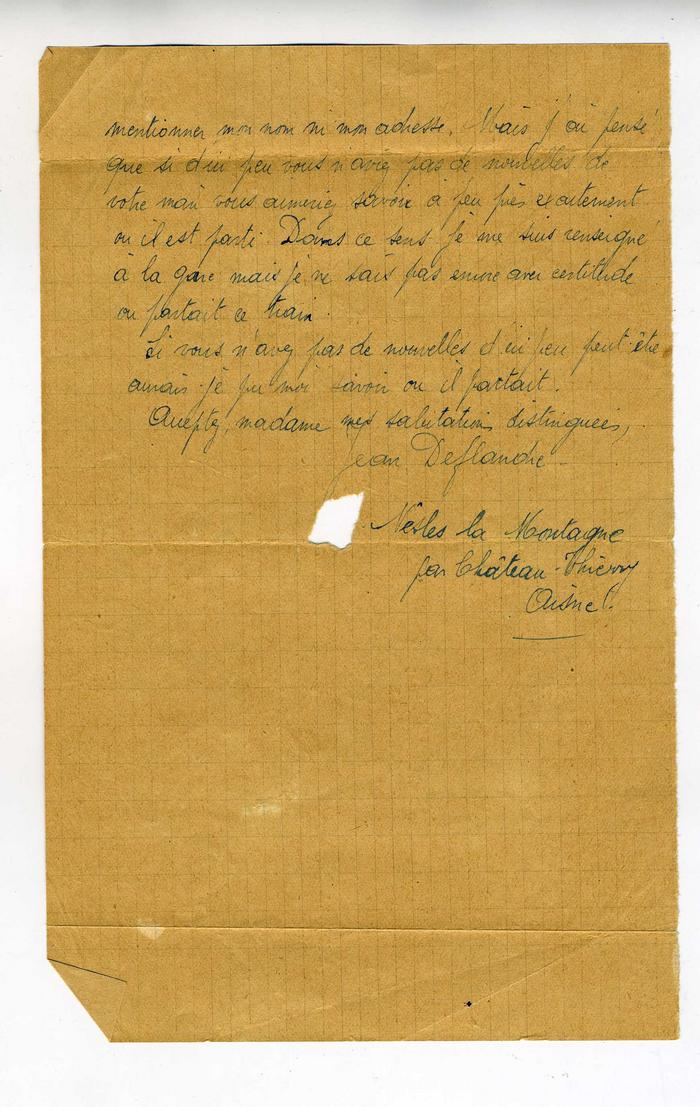 mentionner mon nom ni mon adresse. Mais j'ai pensé
que si d'ici peu vous n'aviez pas de nouvelles de
votre mari vous aimeriez savoir a peu près exactement
ou il est parti. Dans ce sens je me suis renseigné
à la gare mais je ne sais pas encore avec certitude
ou partait ce train.
Si vous n'avez pas de nouvelles d'ici peu peut être
aurais-je pu moi savoir ou il partait.
Acceptez, madame mes salutations distinguées,
Jean Deflandre
Nesles la Montagne
par Château-Thierry
Aisne.